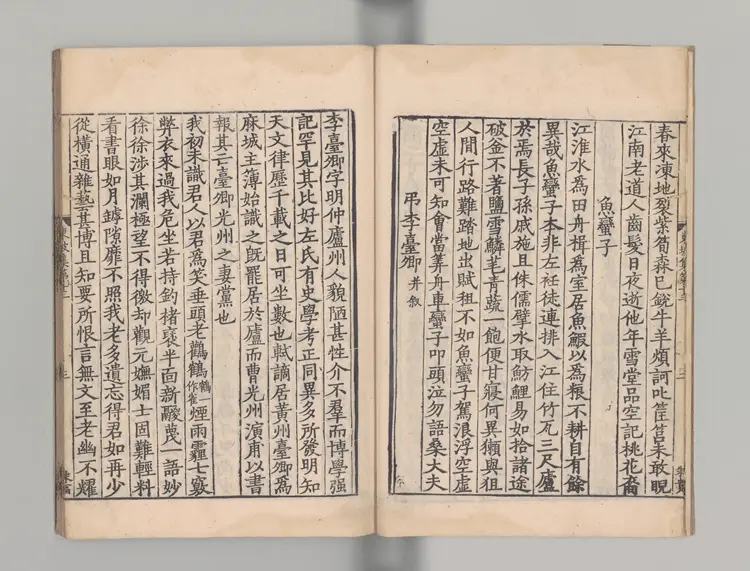 春來凍地裂紫筍森已銳牛羊煩訶叱筐筥未敢睨
江南老道人齒髮日夜逝他年雪堂品空記桃花裔
魚蠻子
江淮水為田舟楫為室居魚鰕以為粮不耕自有餘
異哉魚蠻子本非左衽徒連排入江住竹瓦三尺廬
於焉長子孫戚施且侏儒擘水取魴鯉易如拾諸途
破釜不著鹽雪鱗芼青蔬一飽便甘寢何異獺與狙
人間行路難踏地出賦租不如魚蠻子駕浪浮空虛
空虛未可知會當筭舟車蠻子叩頭泣勿語桑大夫
弔李臺卿并叙
李臺卿字明仲廬州人貌陋甚性介不羣而博學强
記罕見其比好左氏有史學考正同異多所發明知
天文律歷千載之日可坐數也軾謫居黃州臺卿為
麻城主簿始識之旣罷居於廬而曹光州演甫以書
報其亡臺卿光州之妻黨也
我初未識君人以君為笑垂頭老鸛鶴鶴一作雀煙雨霾七竅
弊衣來過我危坐若持釣褚裒半面新鬷蔑一語妙
徐徐涉其瀾極望不得徼却觀元嫵媚士固難輕料
看書眼如月罅隙靡不照我老多遺忘得君如再少
從橫通雜藝甚博且知要所恨言無文至老幽不耀